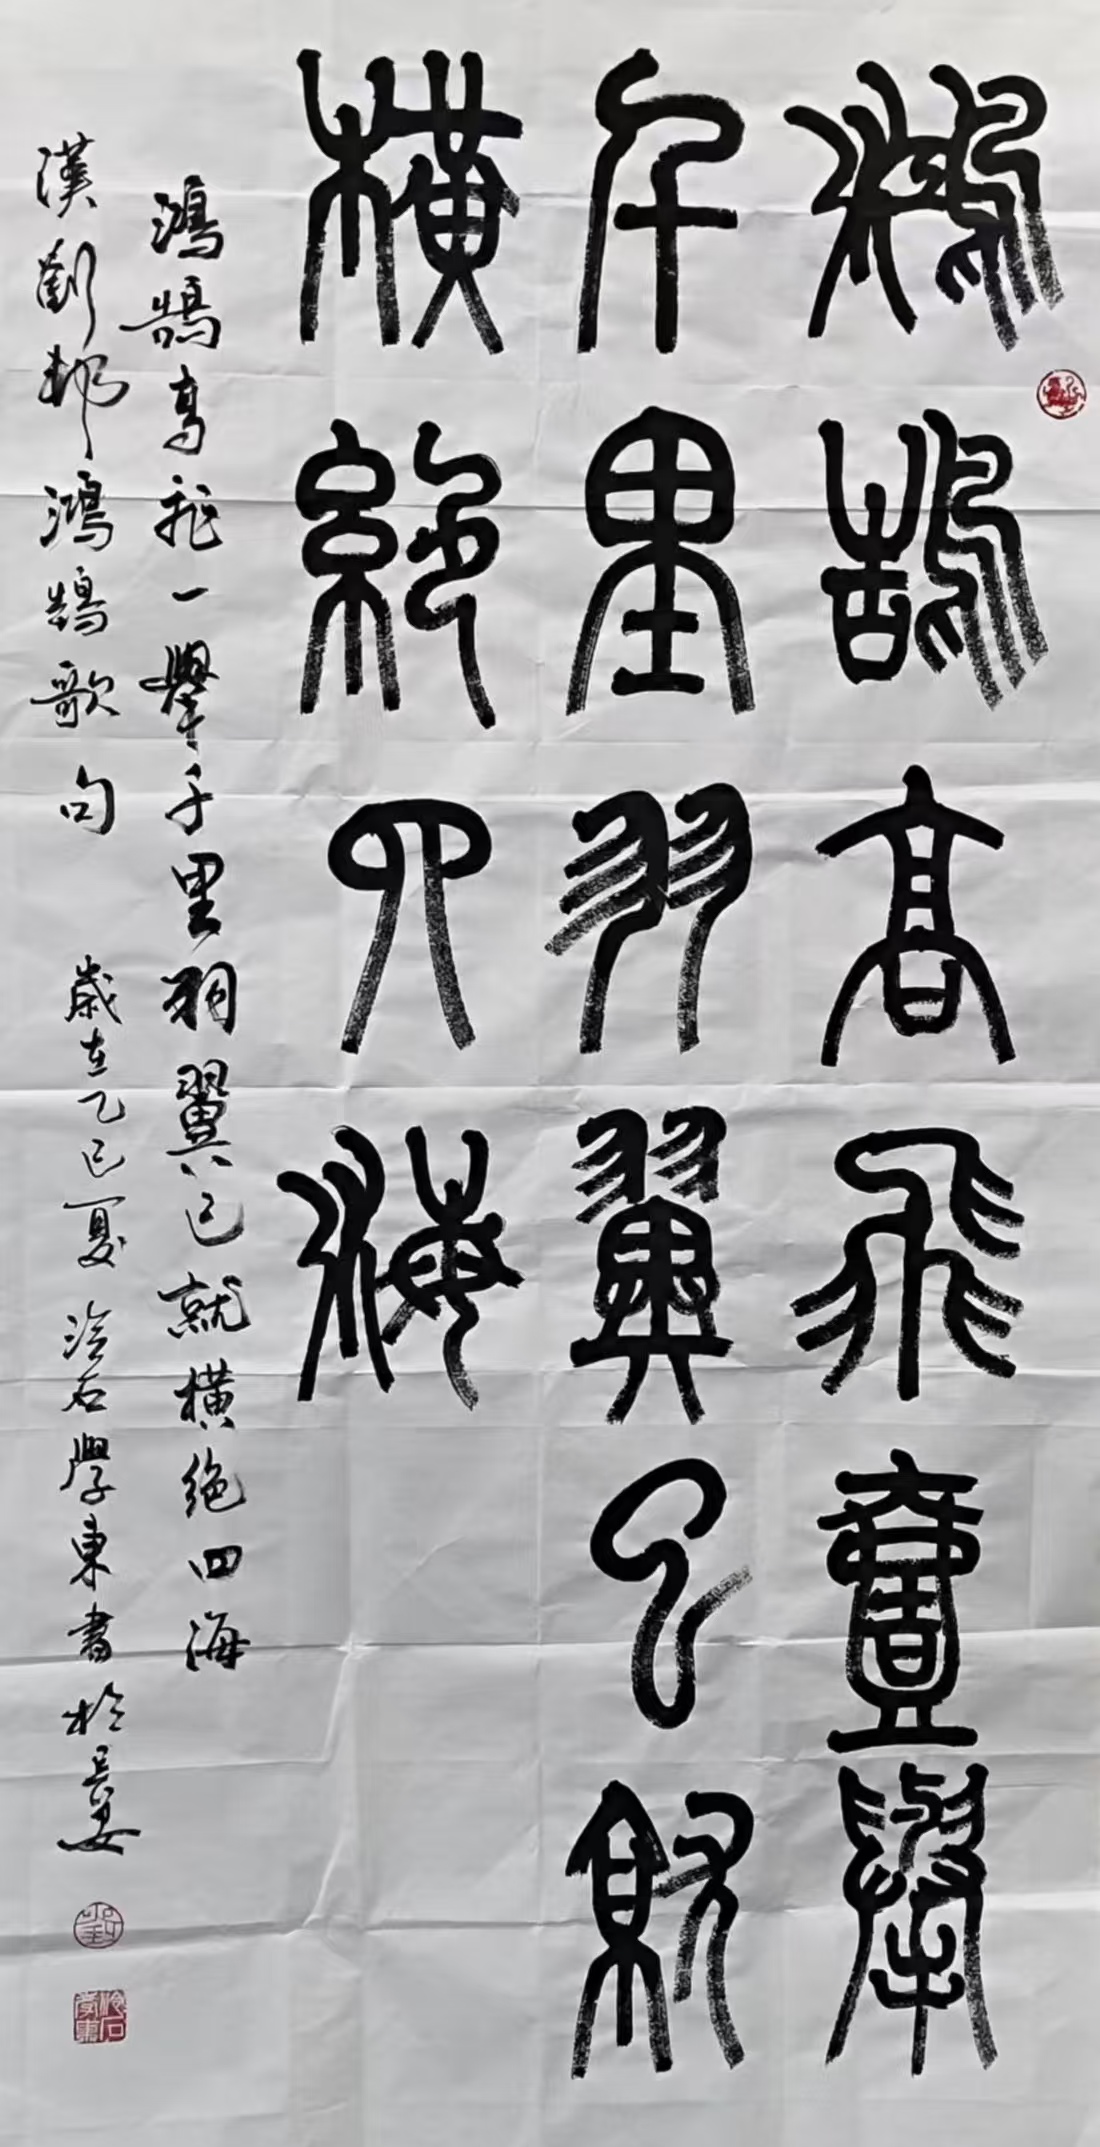 鴻鵠高飛壹舉
千里羽翼已就
橫絕四海
鴻鵠高飛一舉千里羽翼已就橫絕四海
漢劉邦鴻鵠歌句 歲在乙巳夏 泠石學東書於婁
泠石學東